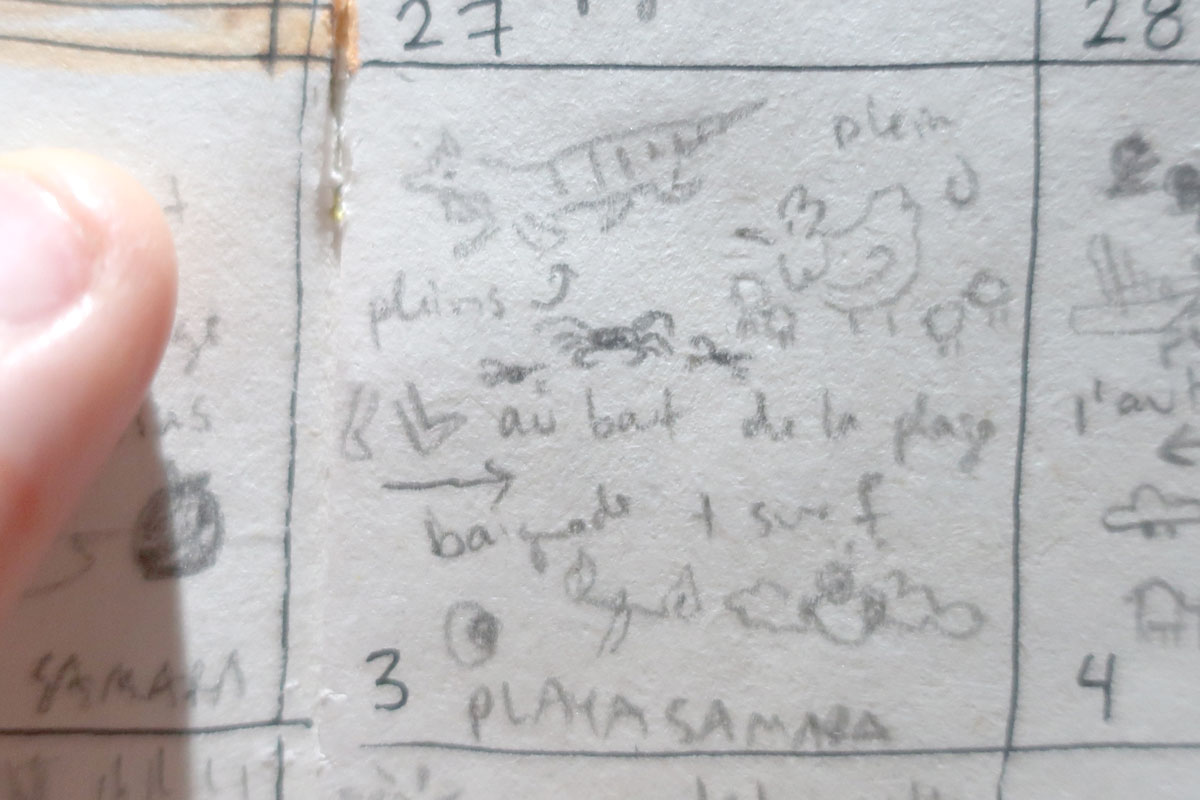 27
28
plein
pleins
au bout de la plage
baignade + surf
3
PLAYA SAMARA
SAMARA
4